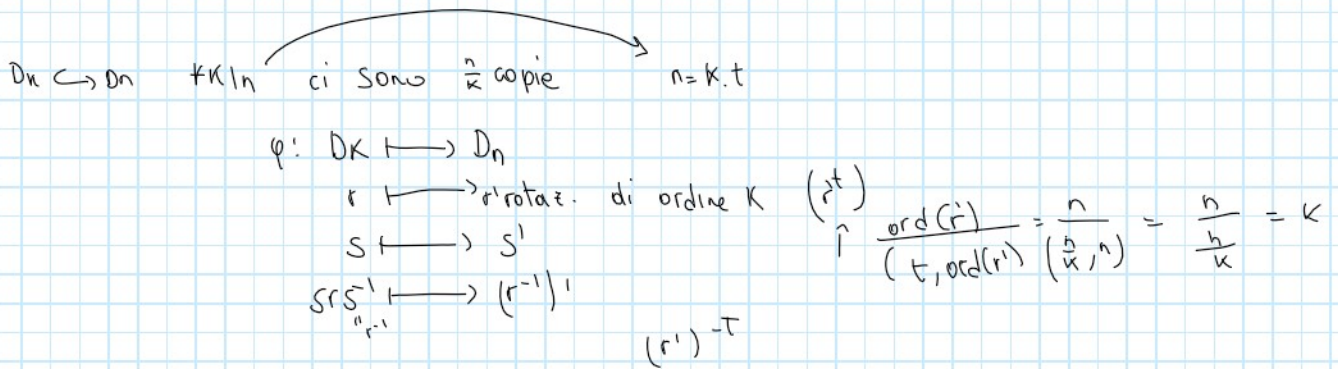 Dk ↪ Dn ∀k|n ci sono n/k copie n=k.t
φ: Dk ⟼ Dn
r ⟼ r' rotaz. di ordine k (r^t)
↑ ord(r')/(t, ord(r')) = n/(n/k, n) = n/(n/k) = k
s ⟼ s'
srs^-1 ⟼ (r^-1)'
" r^-1
(r')^-T